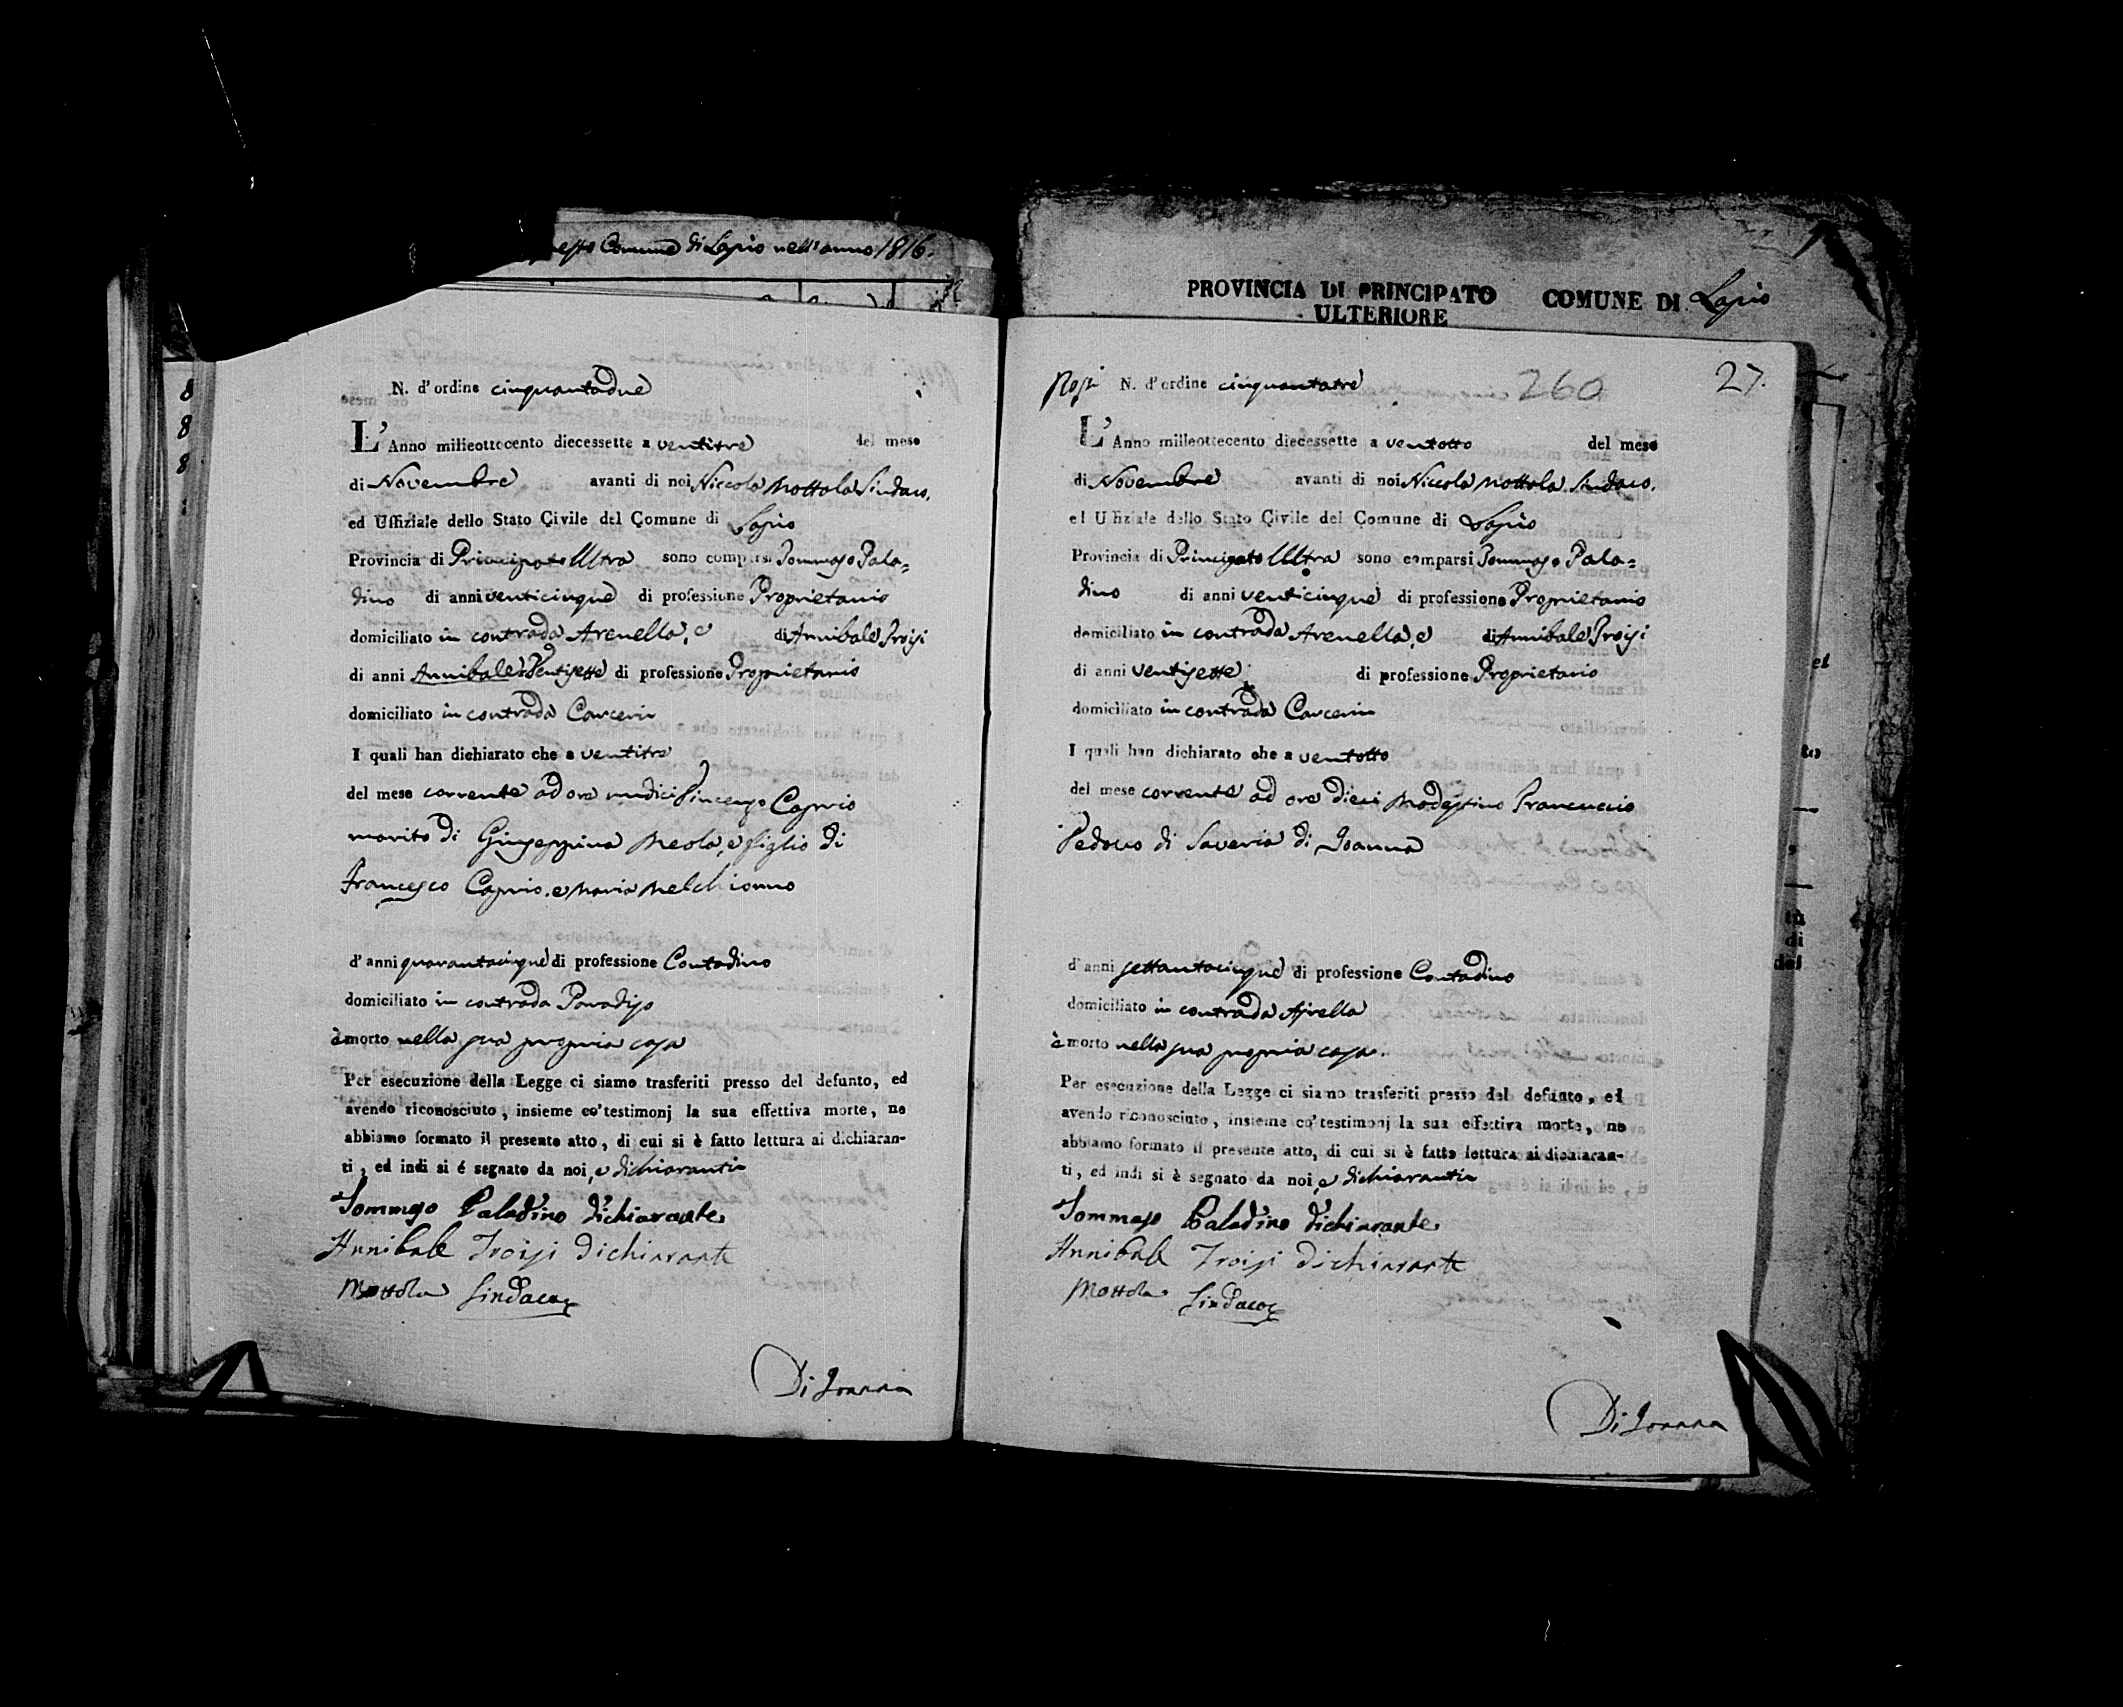 Comune di Lapio nell'anno 1816.
8
8
8
N. d'ordine cinquantadue
L'Anno milleottocento diecessette a ventitre del mese
di Novembre avanti di noi Niccola Mottola Sindaco,
ed Uffiziale dello Stato Civile del Comune di Lapio
Provincia di Principato Ultra sono comparsi Tommaso Pala=
dino di anni venticinque di professione Proprietario
domiciliato in contrada Arenella, e di Annibale Troisi
di anni Annibale Ventisette di professione Proprietario
domiciliato in contrada Carceri
I quali han dichiarato che a ventitre
del mese corrente ad ore undici Vincenzo Caprio
marito di Giuseppina Meola, e figlio di
Francesco Caprio, e Maria Melchionno
d'anni quarantacinque di professione Contadino
domiciliato in contrada Paradiso
è morto nella sua propria casa
Per esecuzione della Legge ci siamo trasferiti presso del defunto, ed
avendo riconosciuto, insieme co'testimonj la sua effettiva morte, ne
abbiamo formato il presente atto, di cui si è fatto lettura ai dichiaran-
ti, ed indi si é segnato da noi, e dichiaranti
Tommaso Paladino dichiarante
Annibale Troisi dichiarante
Mottola Sindaco
Di Ioanna
PROVINCIA DI PRINCIPATO COMUNE DI Lapio
ULTERIORE
N. d'ordine cinquantatre 260 27.
L'Anno milleottocento diecessette a ventotto del mese
di Novembre avanti di noi Niccola Mottola Sindaco,
ed Uffiziale dello Stato Civile del Comune di Lapio
Provincia di Principato Ultra sono comparsi Tommaso Pala=
dino di anni venticinque di professione Proprietario
domiciliato in contrada Arenella, e di Annibale Troisi
di anni ventisette di professione Proprietario
domiciliato in contrada Carceri
I quali han dichiarato che a ventotto
del mese corrente ad ore dieci Modestino Francuccio
Vedovo di Saveria di Ioanna
d'anni settantacinque di professione Contadino
domiciliato in contrada Airella
è morto nella sua propria casa.
Per esecuzione della Legge ci siamo trasferiti presso del defunto, ed
avendo riconosciuto, insieme co'testimonj la sua effettiva morte, ne
abbiamo formato il presente atto, di cui si è fatto lettura ai dichiaran-
ti, ed indi si è segnato da noi, e dichiaranti
Tommaso Paladino dichiarante
Annibale Troisi dichiarante
Mottola Sindaco
Di Ioanna